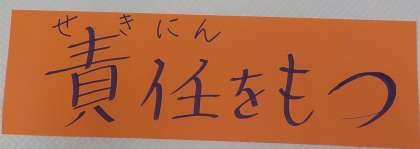 せきにん
責任をもつ